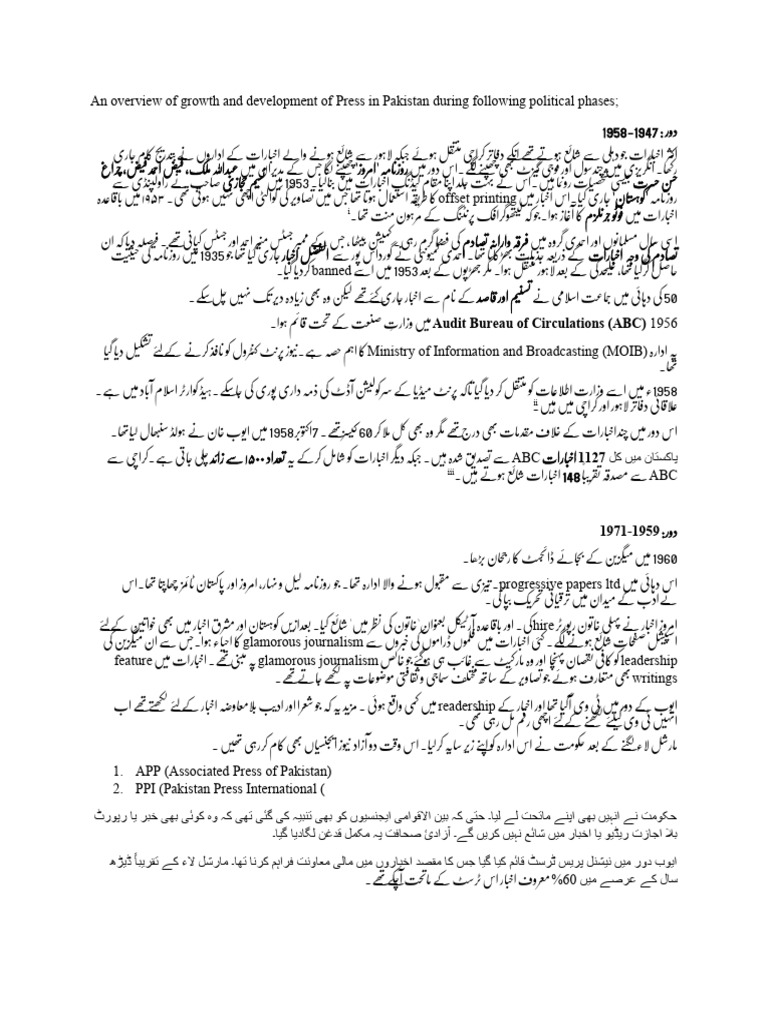 An overview of growth and development of Press in Pakistan during following political phases;
دور: 1947-1958
اکثر اخبارات جو دہلی سے شائع ہوتے تھے انکے دفاتر کراچی منتقل ہوئے جبکہ لاہور سے شائع ہونے والے اخبارات کے اداروں نے بتدریج کام جاری
رکھا۔ انگریزی میں ہفت روزہ سول اور فوجی گیزٹ بھی چھپنے لگے۔ اس دور میں روزنامہ 'امروز' چھپنے لگا جس کے مدیران میں عبداللہ ملک، فیض احمد فیض، چراغ
حسن حسرت جیسی شخصیات رونما ہیں۔ اس نے بہت جلد اپنا مقام لیڈنگ اخبارات میں بنالیا۔ 1953 میں نسیم حجازی صاحب نے راولپنڈی سے
روزنامہ 'کوہستان' جاری کیا۔ اس اخبار میں offset printing کا طریقہ استعمال ہوتا تھا جس میں تصاویر کی کوالٹی اچھی نہیں ہوتی تھی۔ ۱۹۵۳ میں باقاعدہ
اخبارات میں فوٹو جرنلزم کا آغاز ہوا۔ جو کہ لیتھوگرافک پرنٹنگ کے مرہون منت تھا۔ i
اسی سال مسلمانوں اور احمدی گروہ میں فرقہ وارانہ تصادم کی فضا گرم رہی۔ کمیشن بیٹھا، جس کے ممبر جسٹس منیر احمد اور جسٹس کیانی تھے۔ فیصلہ دیا کہ ان
تصادم کی وجہ اخبارات کے ذریعہ جذبات بھڑکانا تھا۔ احمدی کمیونٹی نے گورداس پور سے الفضل اخبار جاری کیا تھا جو 1935 میں روزنامہ کی حیثیت
حاصل کرگیا تھا، علیحدگی کے بعد لاہور منتقل ہوا۔ مگر جھڑپوں کے بعد 1953 میں اسے banned کردیا گیا۔
50 کی دہائی میں جماعت اسلامی نے تسنیم اور قاصد کے نام سے اخبار جاری کئے تھے لیکن وہ بھی زیادہ دیر تک نہیں چل سکے۔
1956 Audit Bureau of Circulations (ABC) میں وزارتِ صنعت کے تحت قائم ہوا۔
یہ ادارہ Ministry of Information and Broadcasting (MOIB) کا اہم حصہ ہے۔ نیوز پرنٹ کنٹرول کو نافذ کرنے کے لئے تشکیل دیا گیا
تھا۔
1958ء میں اسے وزارت اطلاعات کو منتقل کر دیا گیا تاکہ پرنٹ میڈیا کے سرکولیشن آڈٹ کی ذمہ داری پوری کی جاسکے۔ ہیڈ کوارٹر اسلام آباد میں ہے۔
علاقائی دفاتر لاہور اور کراچی میں ہیں۔ ii
اس دور میں چند اخبارات کے خلاف مقدمات بھی درج تھے مگر وہ بھی کل ملا کر 60 کیسز تھے۔ 7 اکتوبر 1958 میں ایوب خان نے ہولڈ سنبھال لیا تھا۔
پاکستان میں کل 1127 اخبارات ABC سے تصدیق شدہ ہیں۔ جبکہ دیگر اخبارات کو شامل کرکے یہ تعداد ۱۵۰۰ سے زائد چلی جاتی ہے۔ کراچی سے
ABC سے مصدقہ تقریباً 148 اخبارات شائع ہوتے ہیں۔ iii
دور: 1959-1971
1960 میں میگزین کے بجائے ڈائجسٹ کا رجحان بڑھا۔
اس دہائی میں progressive papers ltd۔ تیزی سے مقبول ہونے والا ادارہ تھا۔ جو روزنامہ لیل و نہار، امروز اور پاکستان ٹائمز چھاپتا تھا۔ اس
نے ادب کے میدان میں ترقیاتی تحریک بپا کی۔
امروز اخبار نے پہلی خاتون رپورٹر hire کی۔ اور باقاعدہ آرٹیکل بعنوان 'خاتون کی نظر میں' شائع کیا۔ بعد ازیں کوہستان اور مشرق اخبار میں بھی خواتین کے لئے
اسپیشل صفحات شائع ہونے لگے۔ کئی اخبارات میں فلموں ڈراموں کی خبروں سے glamorous journalism کا احیاء ہوا۔ جس سے ان میگزین کی
leadership کو کافی نقصان پہنچا اور وہ مارکیٹ سے غائب ہی ہوگئے جو خالص glamorous journalism پہ مبنی تھے۔ اخبارات میں feature
writings بھی متعارف ہوئے جو تصاویر کے ساتھ مختلف سماجی و ثقافتی موضوعات پہ لکھے جاتے تھے۔
ایوب کے دور میں ٹی وی آگیا تھا اور اخبار کے readership میں کمی واقع ہوئی۔ مزید یہ کہ جو شعرا اور ادیب بلا معاوضہ اخبار کے لئے لکھتے تھے اب
انہیں ٹی وی کیلئے لکھنے کے لئے اچھی رقم مل رہی تھی۔
مارشل لاء لگنے کے بعد حکومت نے اس ادارہ کو اپنے زیر سایہ کرلیا۔ اس وقت دو آزاد نیوز ایجنسیاں بھی کام کر رہی تھیں۔
1. APP (Associated Press of Pakistan)
2. PPI (Pakistan Press International (
حکومت نے انہیں بھی اپنے ماتحت لے لیا۔ حتی کہ بین الاقوامی ایجنسیوں کو بھی تنبیہ کی گئی تھی کہ وہ کوئی بھی خبر یا رپورٹ
بلا اجازت ریڈیو یا اخبار میں شائع نہیں کریں گے۔ آزادئ صحافت پہ مکمل قدغن لگادیا گیا۔
ایوب دور میں نیشنل پریس ٹرسٹ قائم کیا گیا جس کا مقصد اخباروں میں مالی معاونت فراہم کرنا تھا۔ مارشل لاء کے تقریباً ڈیڑھ
سال کے عرصے میں 60% معروف اخبار اس ٹرسٹ کے ماتحت آچکے تھے۔